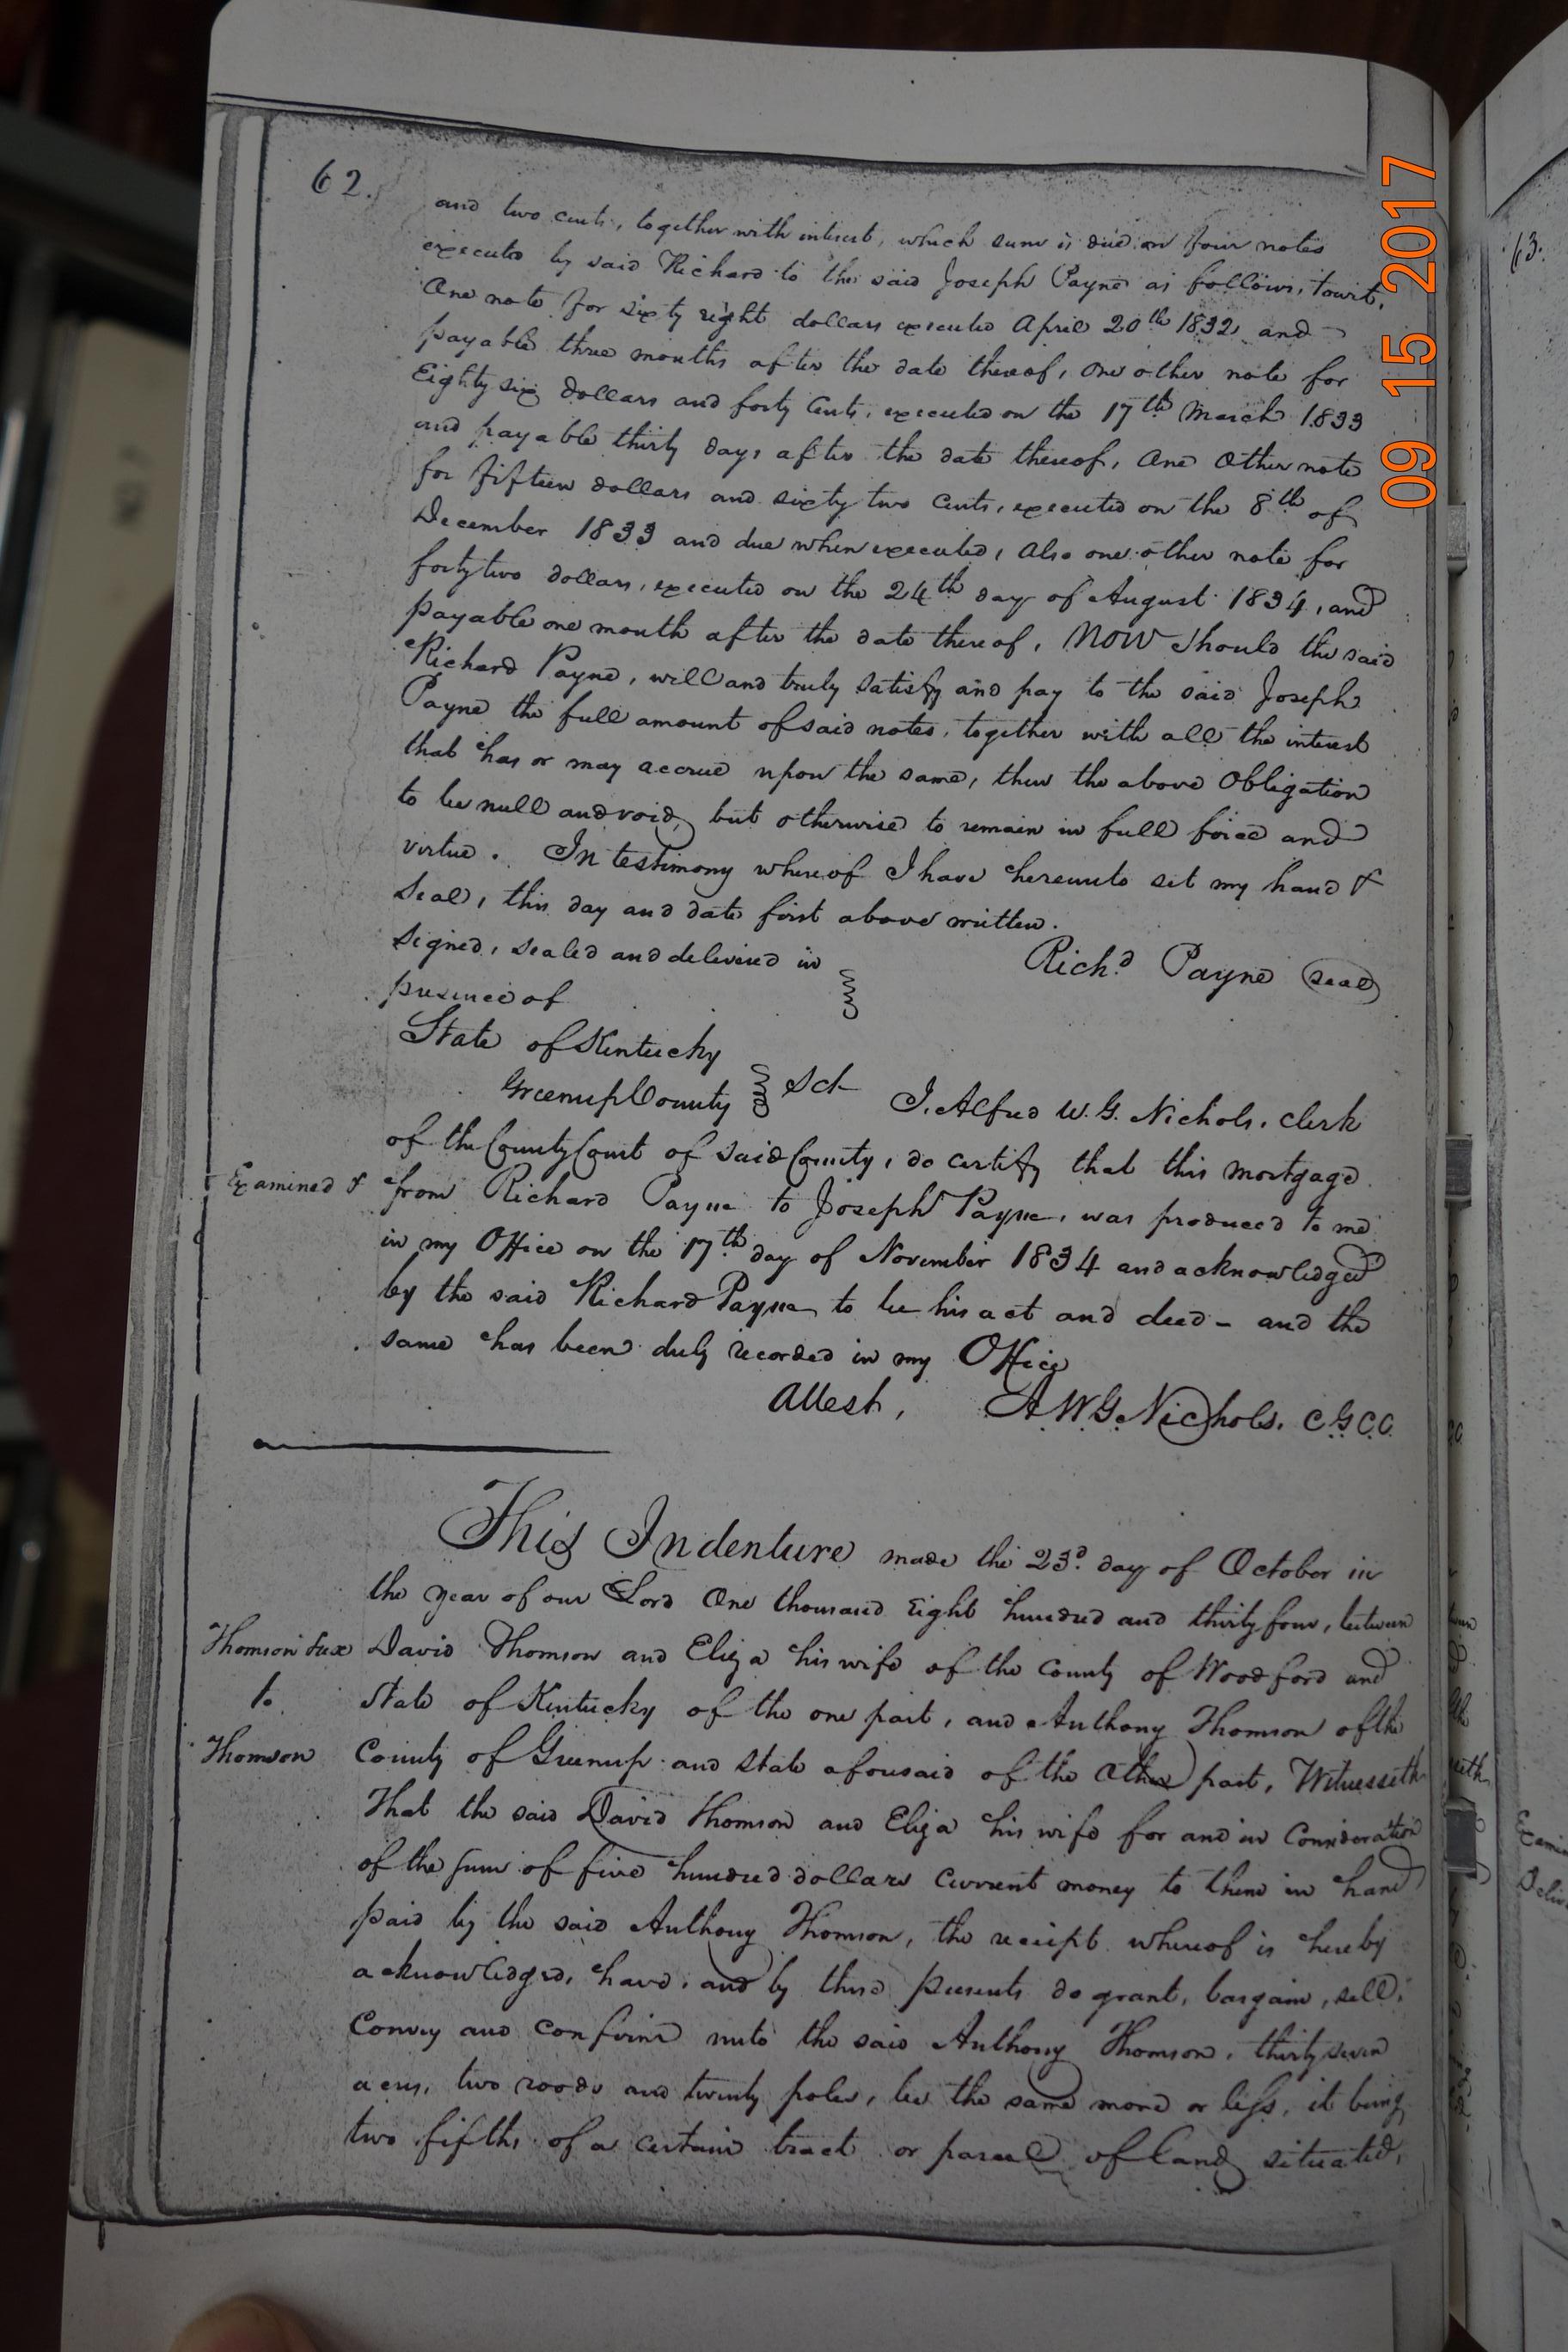 62.
and two cents, together with interest, which sum is due on four notes
executed by said Richard to the said Joseph Payne as follows, towit,
One note for sixty eight dollars executed April 20th 1832 and
payable three months after the date thereof, one other note for
Eighty six dollars and forty Cents, executed on the 17th March 1833
and payable thirty days after the date thereof, One Other note
for fifteen dollars and sixty two Cents, executed on the 8th of
December 1833 and due when executed, Also one other note for
forty two dollars, executed on the 24th day of August 1834, and
payable one month after the date thereof, NOW should the said
Richard Payne, will and truly satisfy and pay to the said Joseph
Payne the full amount of said notes, together with all the interest
that has or may accrue upon the same, then the above Obligation
to be null and void, but otherwise to remain in full force and
virtue. In testimony whereof I have hereunto set my hand &
Seal, this day and date first above written.
Signed, sealed and delivered in
presence of
Richd Payne (seal)
State of Kentucky
Greenup County Sct
I, Alfred W. G. Nichols, Clerk
of the County Court of said County, do certify that this mortgage
Examined & from Richard Payne to Joseph Payne, was produced to me
in my Office on the 17th day of November 1834 and acknowledged
by the said Richard Payne to be his act and deed - and the
same has been duly recorded in my Office
Attest, A. W. G. Nichols. C.G.C.C.
This Indenture made the 23d day of October in
the year of our Lord One thousand Eight hundred and thirty four, between
Thomson &ux David Thomson and Eliza his wife of the County of Woodford and
to State of Kentucky of the one part, and Anthony Thomson of the
Thomson County of Greenup and State aforesaid of the Other part, Witnesseth
That the said David Thomson and Eliza his wife for and in Consideration
of the sum of five hundred dollars Current money to them in hand
paid by the said Anthony Thomson, the receipt whereof is hereby
acknowledged, have, and by these presents do grant, bargain, sell,
Convey and confirm unto the said Anthony Thomson, thirty seven
acres, two roods and twenty poles, be the same more or less, it being
two fifths of a certain tract or parcel of land situated,
09 15 2017
63.